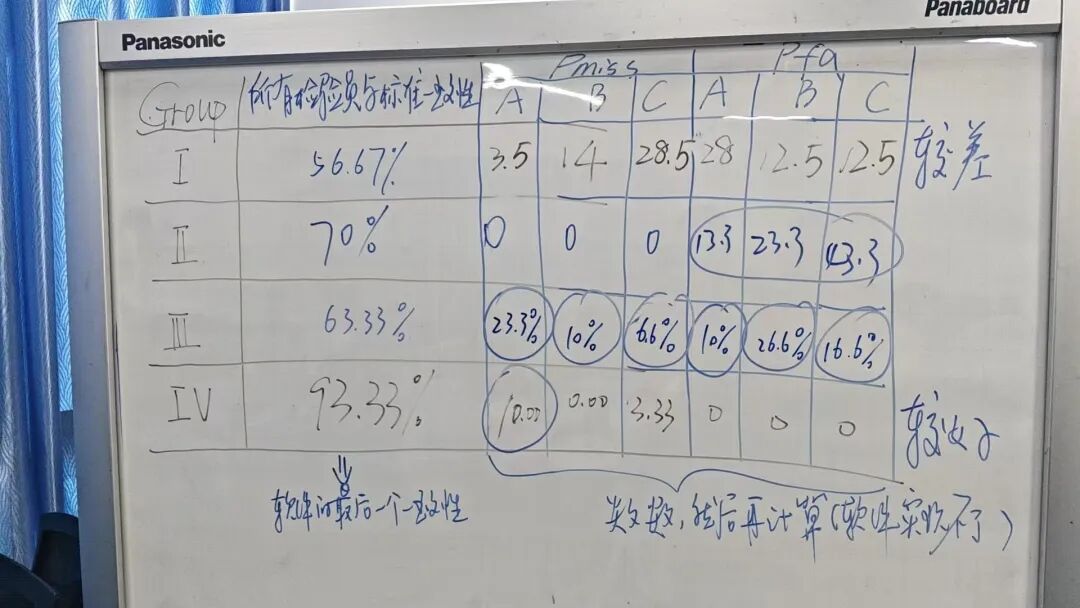 Panaboard
Panasonic
Pmiss Pfa
Group 所有检验员与标准一致性 A B C A B C
I 56.67% 3.5 14 28.5 28 12.5 12.5 较差
II 70% 0 0 0 13.3 23.3 43.3
III 63.33% 23.3% 10% 6.6% 10% 26.6% 16.6%
IV 93.33% 10.00 0.00 3.33 0 0 0 较好
软件的最后一个一致性
数数,然后再计算(软件实现不了)